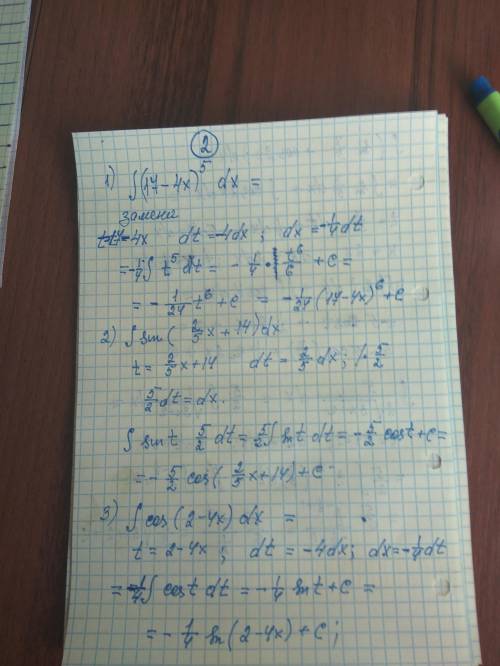 2
1) ∫(17-4x)^5 dx =
замена
t=17-4x dt=-4dx; dx=-1/4 dt
=-1/4∫ t^5 dt = -1/4 · t^6/6 + C =
= -1/24 t^6 + C = -1/24 (17-4x)^6 + C
2) ∫ sin(2/5 x + 14) dx
t = 2/5 x + 14 dt = 2/5 dx; /· 5/2
5/2 dt = dx.
∫ sin t 5/2 dt = 5/2 ∫ sn t dt = -5/2 cost + C =
= -5/2 cos(2/5 x + 14) + C
3) ∫ cos(2-4x) dx =
t = 2-4x; dt = -4dx; dx = -1/4 dt
= -1/4 ∫ cost dt = -1/4 sn t + C =
= -1/4 sn(2-4x) + C;